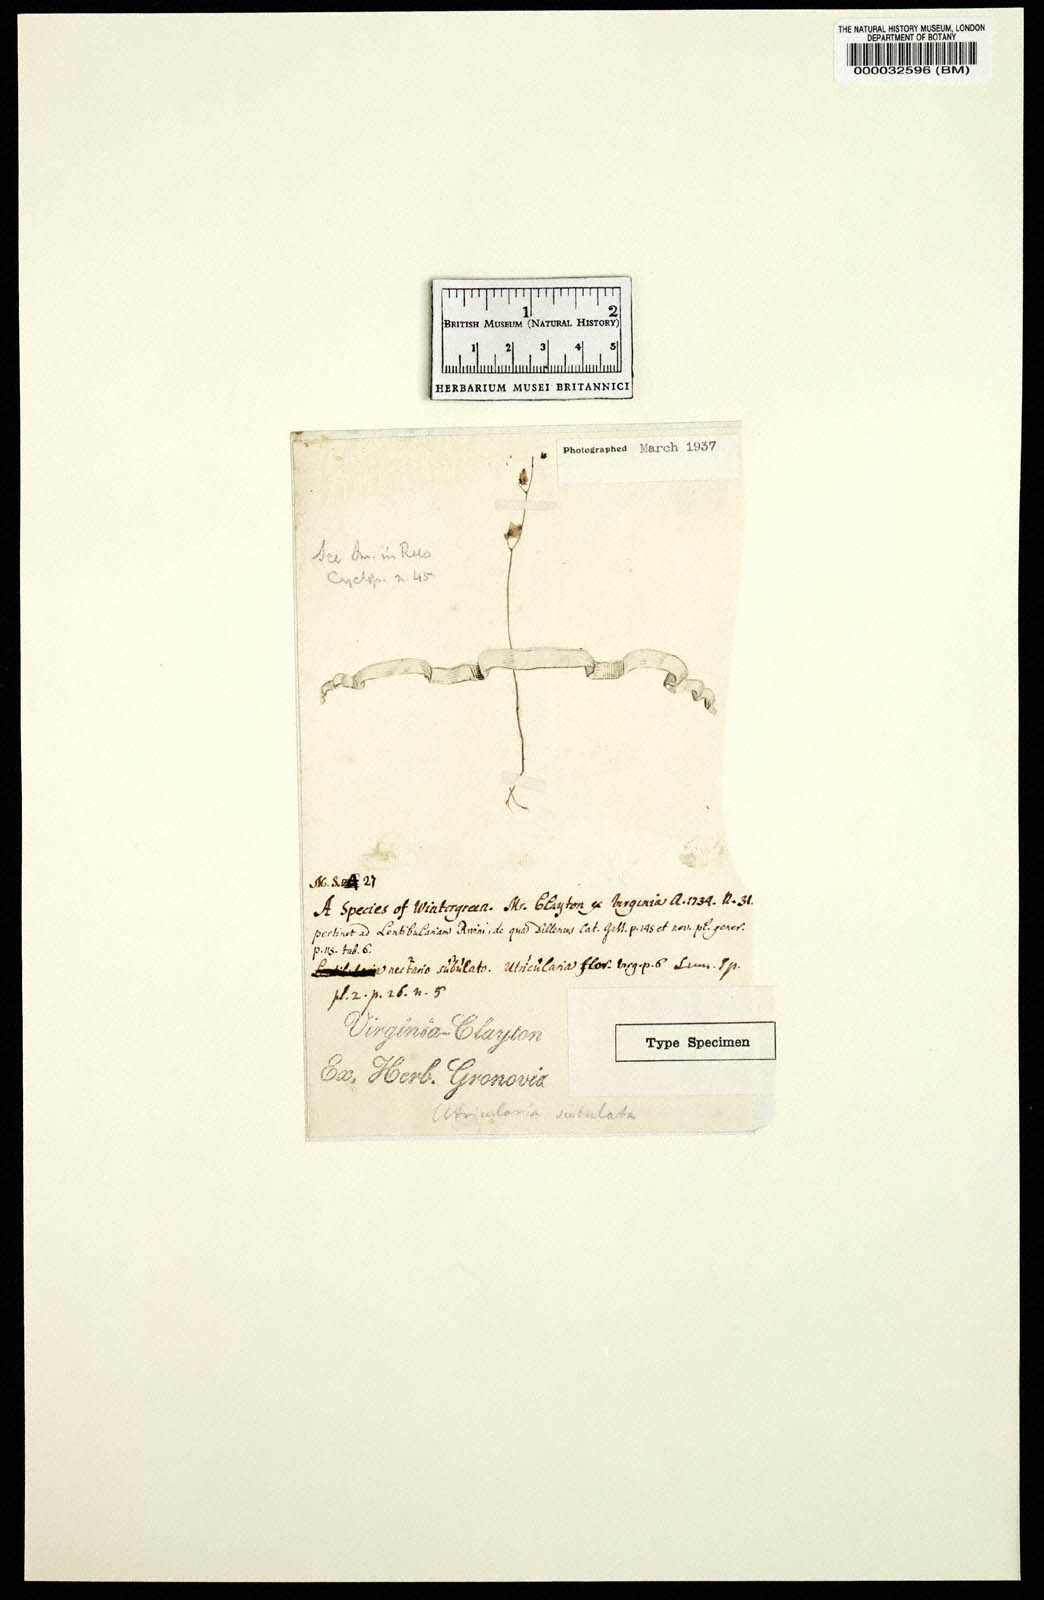 THE NATURAL HISTORY MUSEUM, LONDON
DEPARTMENT OF BOTANY
000032596 (BM)
1 2
BRITISH MUSEUM (NATURAL HISTORY)
1 2 3 4 5
HERBARIUM MUSEI BRITANNICI
Photographed March 1937
See Sm. in Rees
Cyclop. n. 45
27
A Species of Wintergreen. Mr. Clayton ex Virginia A. 1734. N. 31.
pertinet ad Lentibulariam Rivini, de qua Dillenius Cat. Giss. p. 145 et nov. pl. gener.
p. 113. tab. 6.
nectario subulato. Utricularia flor. virg. p. 6 Linn. Sp.
pl. 2. p. 26. n. 5
Virginia - Clayton
Ex. Herb. Gronovii
Type Specimen
Utricularia subulata